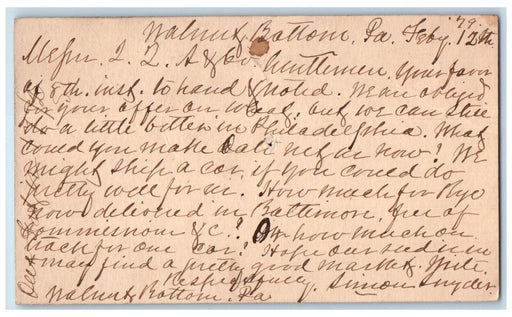 Walnut Bottom, Pa. Feby. 12th '79.
Messrs. & Co. Gentlemen, Your favor
of 8th. inst. to hand & Noted. We are obliged
for your offer on wheat, but we can still
do a little better in Philadelphia. What
could you make Oats net us now? We
might ship a car, if you could do
pretty well for us. How much for Rye
now delivered in Baltimore, free of
Commissions &c.? Or how much on
track for one car? Hope our seed
may find a pretty good market.
Respectfully, Simon Snyder.
Walnut Bottom, Pa